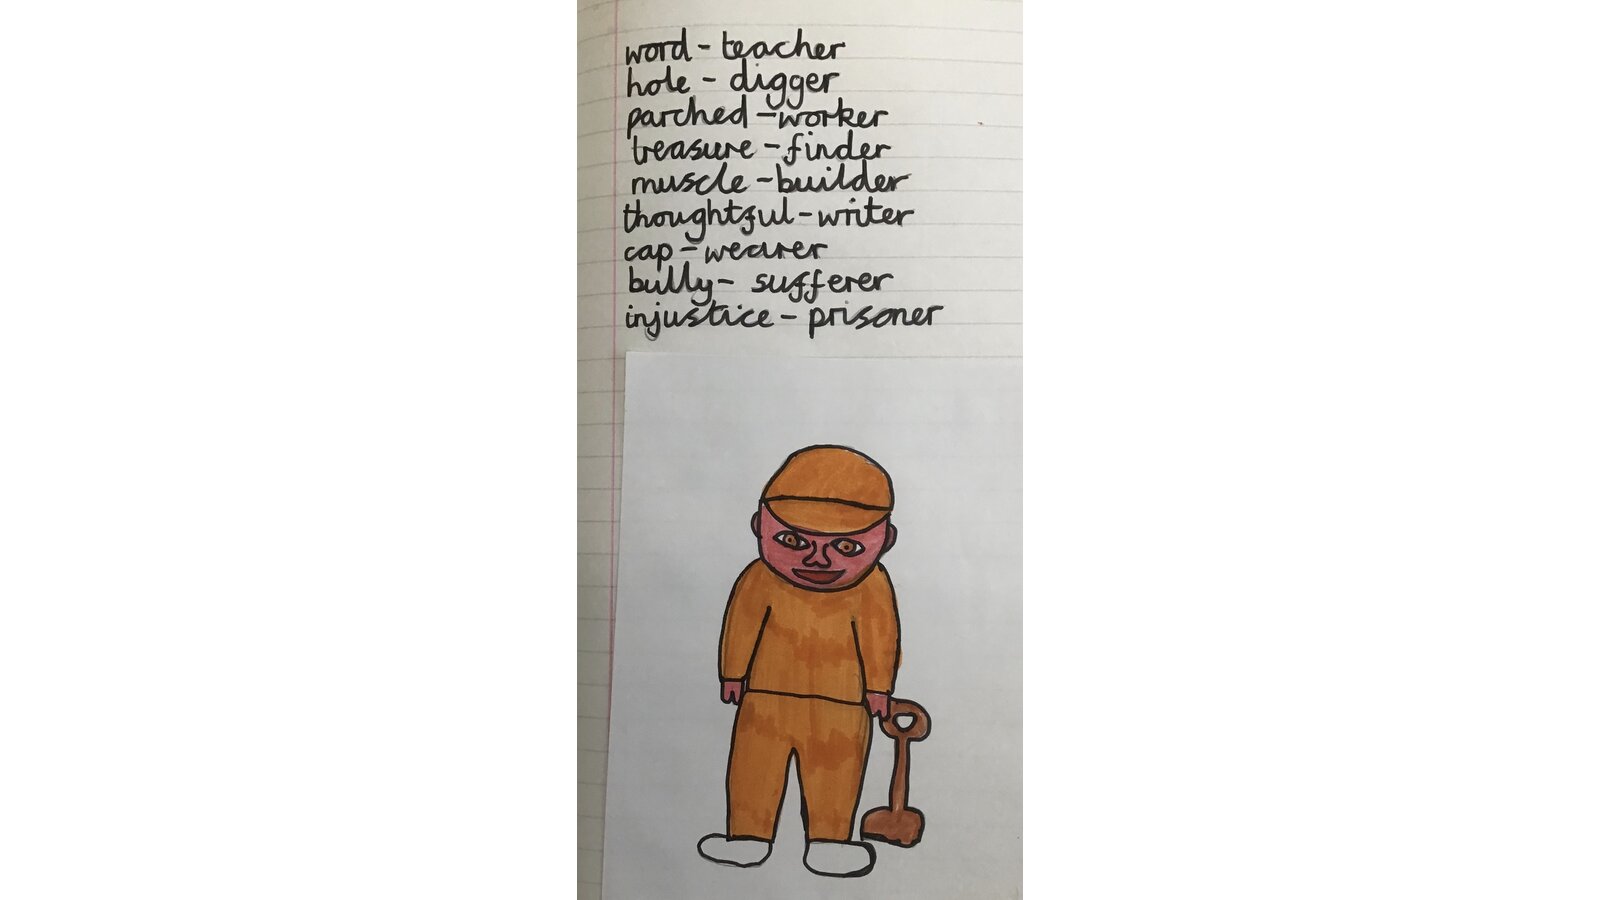 word - teacher
hole - digger
parched - worker
treasure - finder
muscle - builder
thoughtful - writer
cap - wearer
bully - sufferer
injustice - prisoner